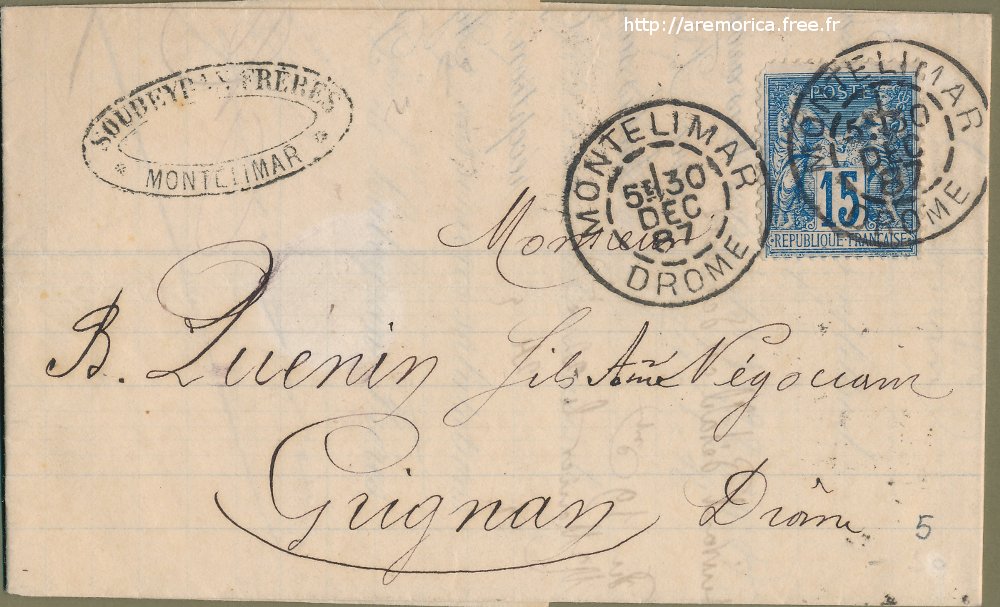 http://aremorica.free.fr
SOUBEYRAN FRÈRES
* MONTELIMAR *
MONTELIMAR
5E 30
DEC
87
DROME
POSTE
15
REPUBLIQUE FRANÇAISE
MONTELIMAR
DEC
87
DROME
Monsieur
B. Quenin fils Ainé Négociant
Grignan Drôme
5